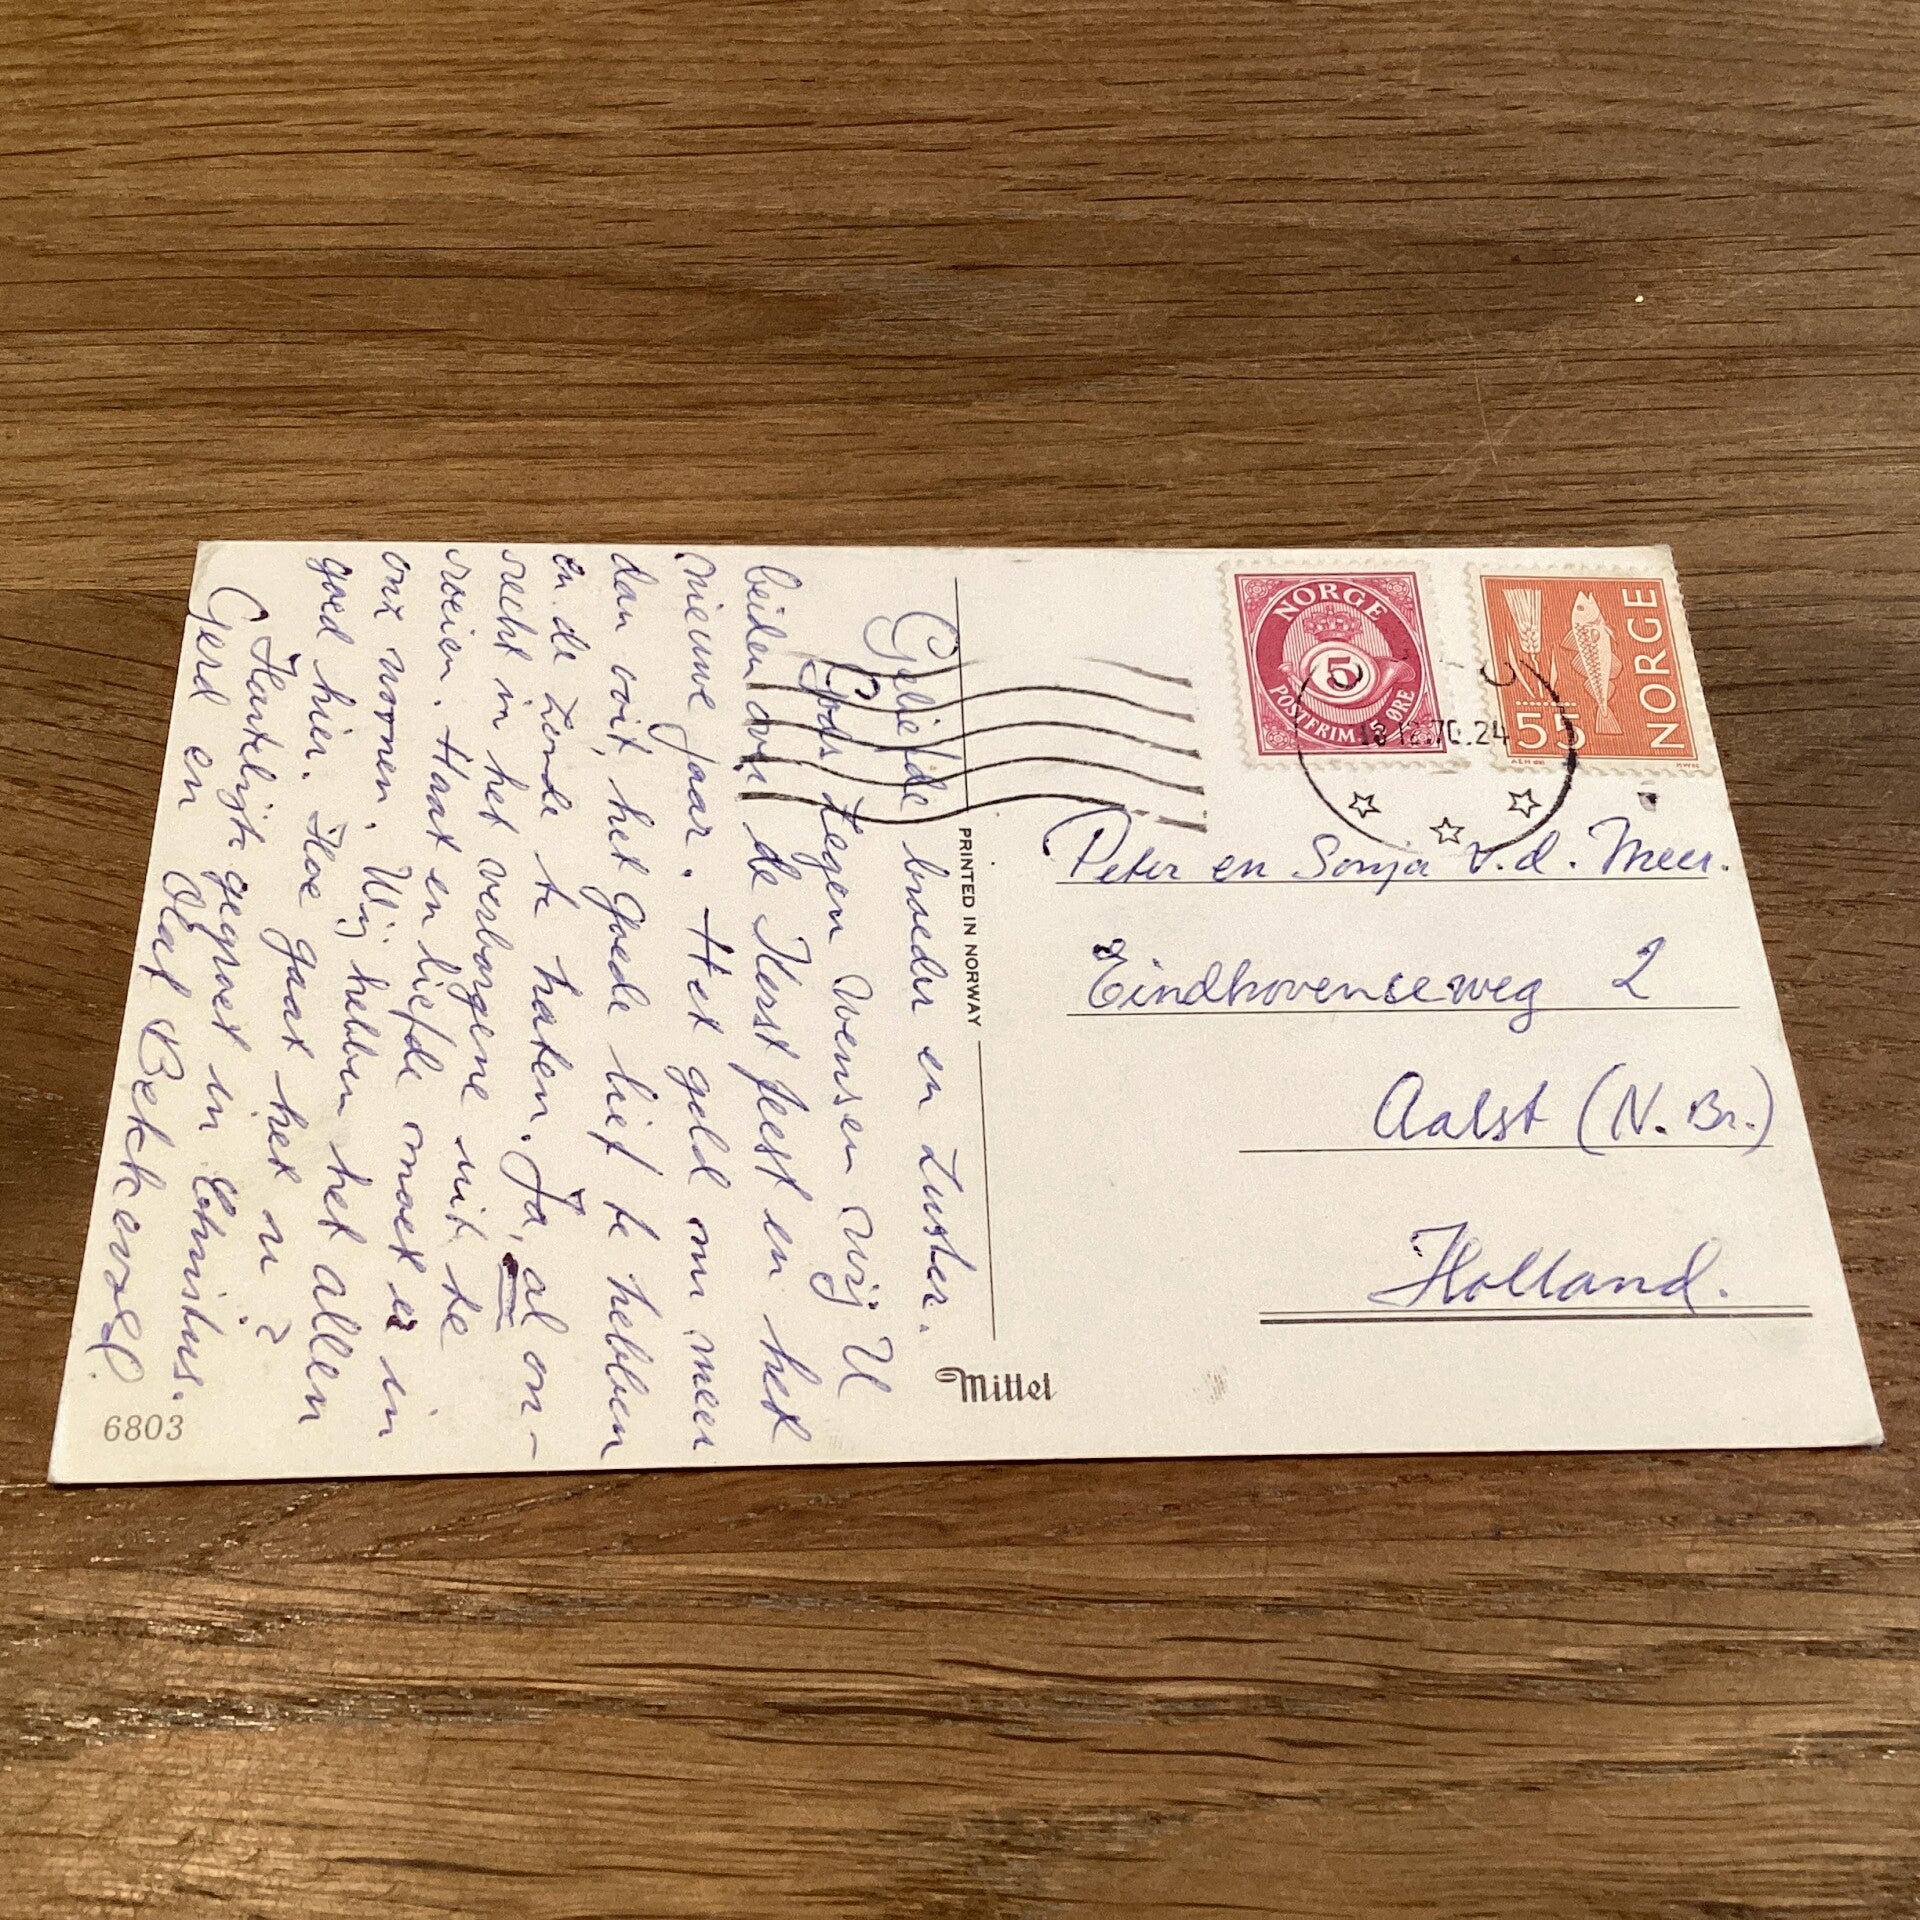 Geliefde broeder en zuster.
Gods zegen wensen wij U
beiden over de Kerst feest en het
nieuwe jaar. Het geld om meer
dan ooit het Goede lief te hebben
en de zonde te haten. Ja, al on-
recht in het verborgene uit te
roeien. Haat en liefde moet er in
ons wonen. Wij hebben het allen
goed hier. Hoe gaat het u?
Hartelijk gegroet in Christus.
Gerd en Olat Bekkevold.
6803
PRINTED IN NORWAY
Mittel
NORGE
5
POSTFRIM 5 ØRE
NORGE
55
70.24
Peter en Sonja v.d. Meer.
Eindhovenseweg 2
Aalst (N. Br.)
Holland.